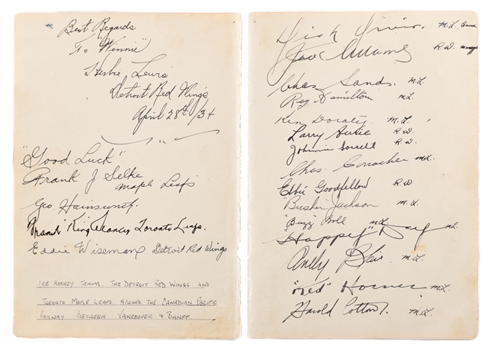 "Best Regards
To "Winnie"
Herbie Lewis
Detroit Red Wings
April 28th/34
"Good Luck"
Frank J Selke
Maple Leafs
Geo Hainsworth
Frank King Clancy Toronto Leafs.
Eddie Wiseman Detroit Red Wings
ICE HOCKEY TEAM. THE DETROIT RED WINGS AND
TORONTO MAPLE LEAFS ABOARD THE CANADIAN PACIFIC
RAILWAY BETWEEN VANCOUVER & BANFF.
Dick Irvin. M.L.
Jack Adams R.W.
Chas Sands. M.L.
Reg Hamilton M.L.
Ken Doraty M.L.
Larry Aurie R.W.
Johnnie Sorrell R.W.
Chas. Conacher M.L.
Ebbie Goodfellow R.W
Busher Jackson M.L.
"Buzz" Boll M.L.
Happy Day M.L.
Andy Blair M.L.
"Red" Horner M.L.
Harold Cotton. M.L.